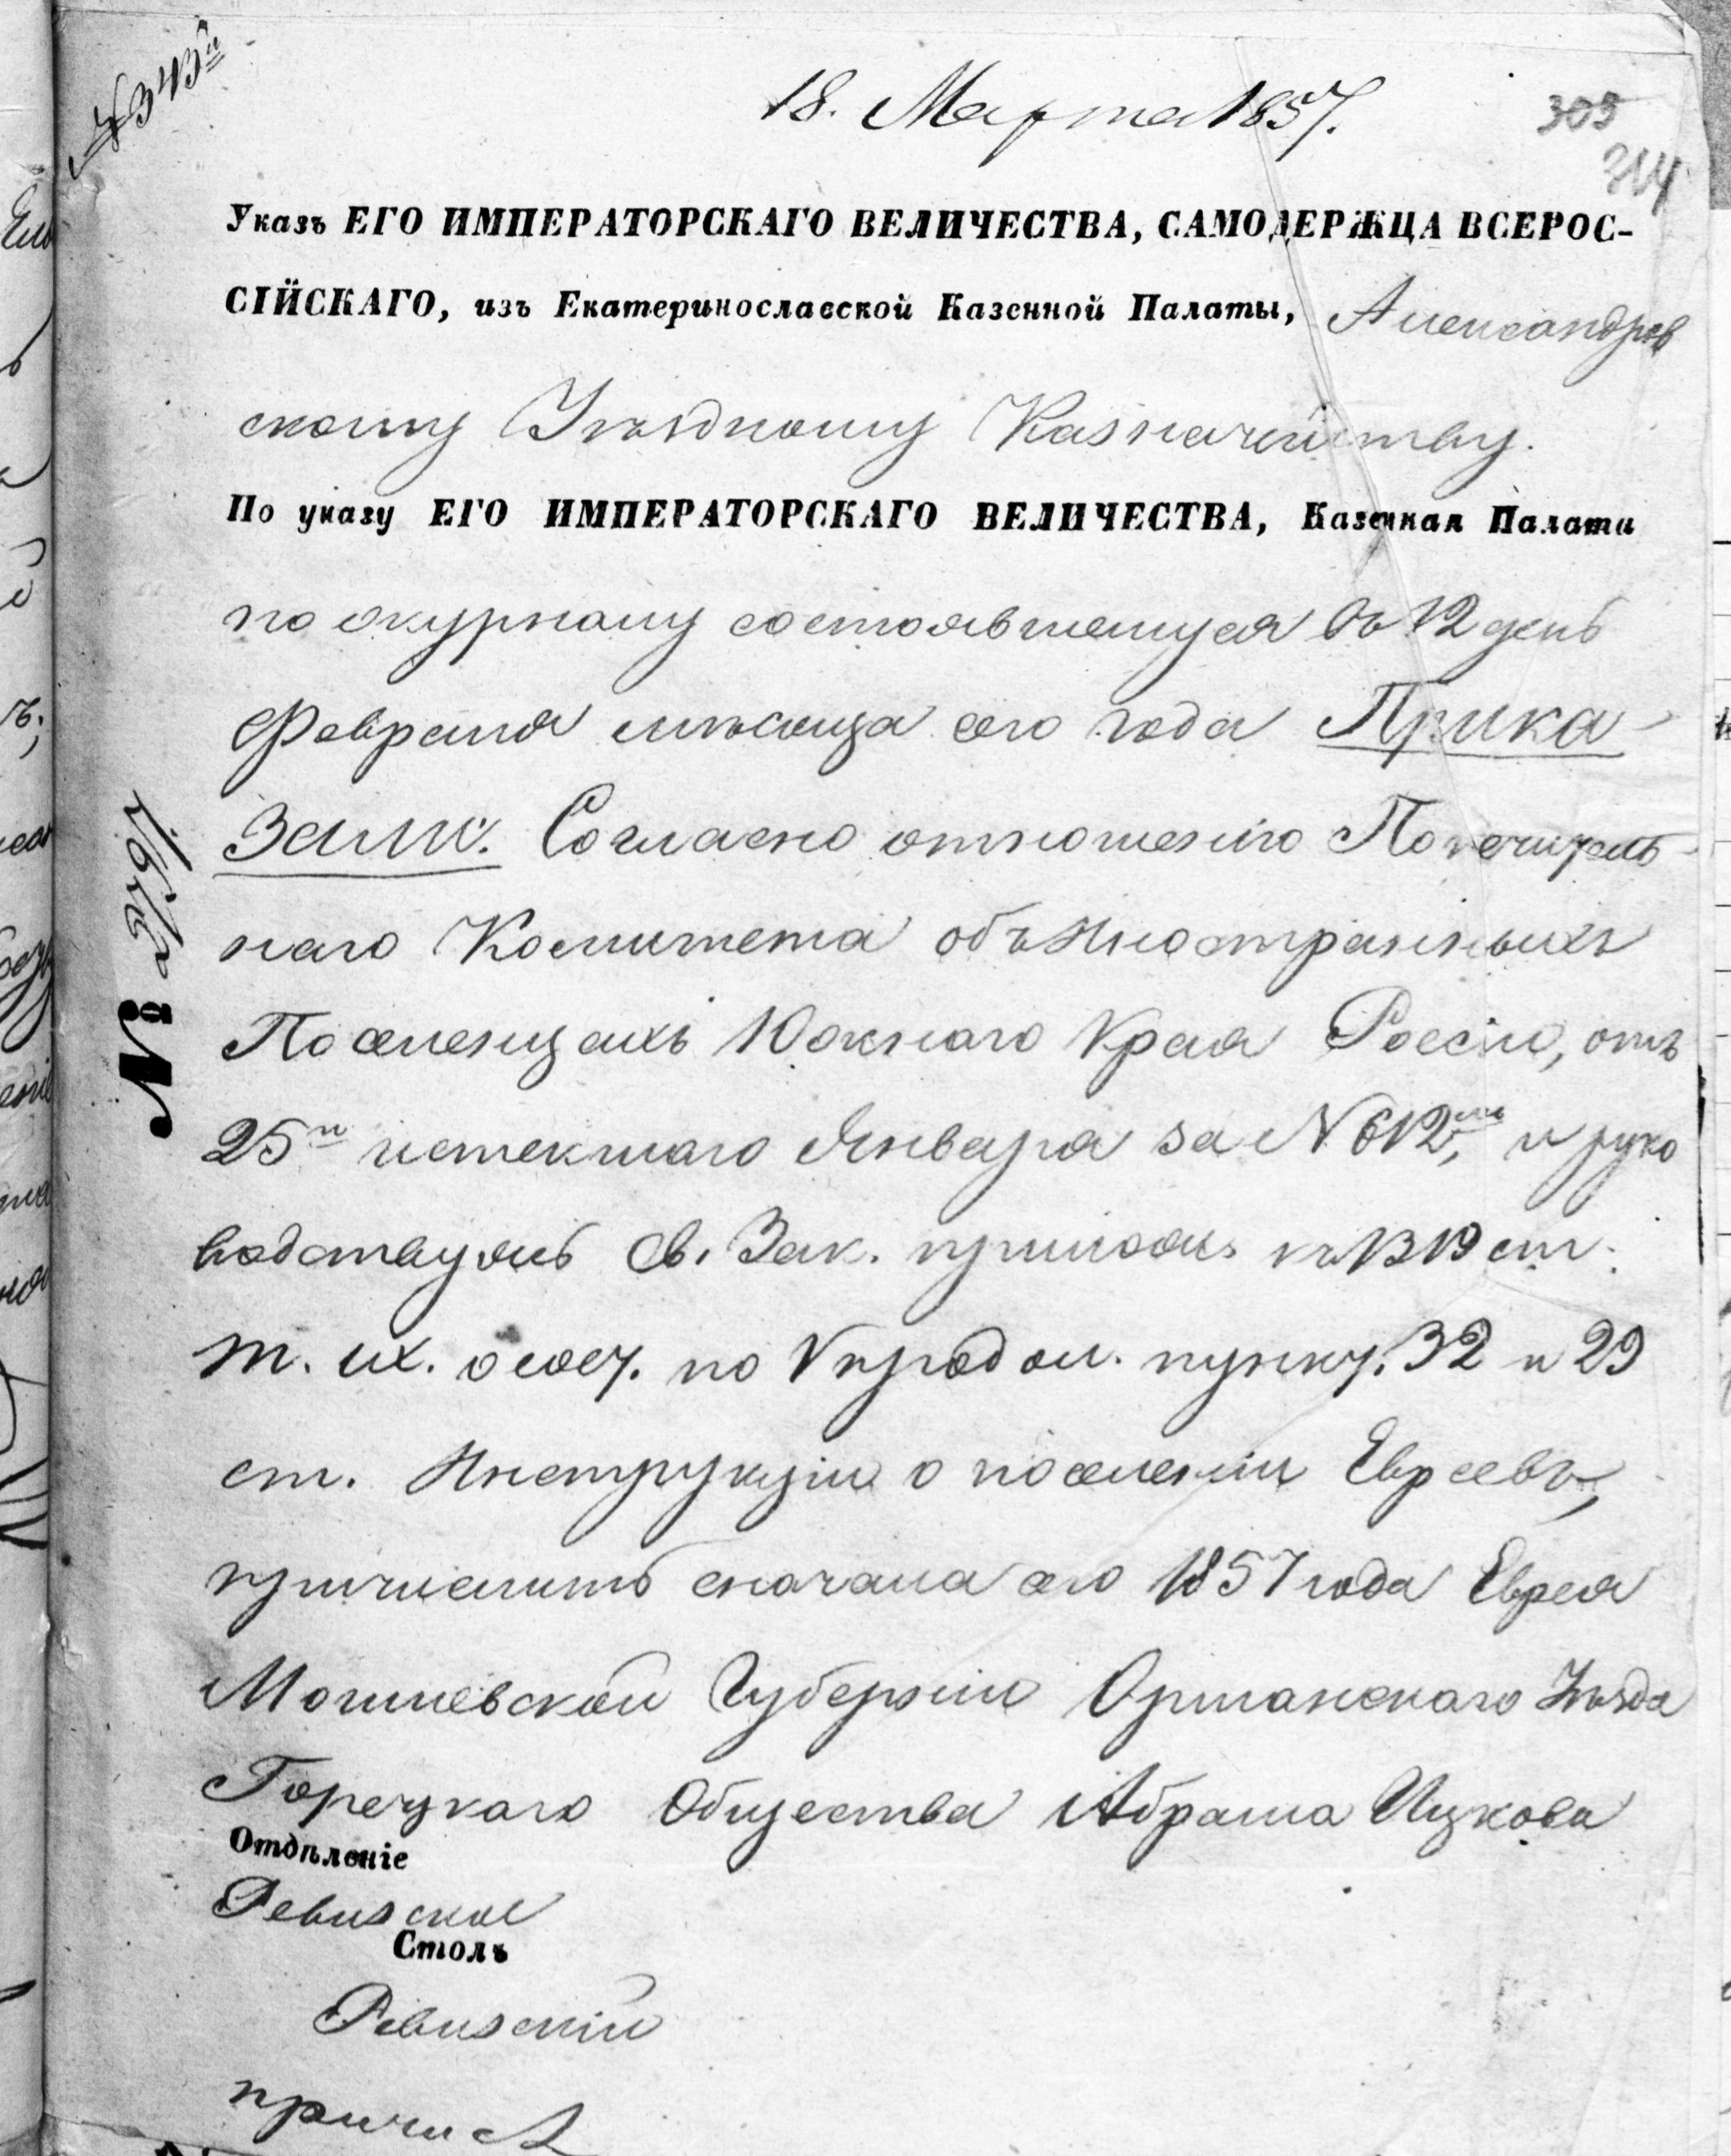 № 343й
18. Марта 1857.
309
314
Указъ ЕГО ИМПЕРАТОРСКАГО ВЕЛИЧЕСТВА, САМОДЕРЖЦА ВСЕРОС-
СІЙСКАГО, изъ Екатеринославской Казенной Палаты, Александров
скому Уѣздному Казначейству.
По указу ЕГО ИМПЕРАТОРСКАГО ВЕЛИЧЕСТВА, Казенная Палата
по журналу состоявшемуся въ 12 день
Февраля мѣсяца сего года Прика-
зали: Согласно отношенію Попечитель-
наго Комитета объ Иностранныхъ
Поселенцахъ Южнаго Края Россіи, отъ
25го истекшаго Января за № 612мъ, и руко
водствуясь Св. Зак. прилож. къ 1319 ст.
т. IX. о сост. по V продол. пункт. 32 и 29
ст. Инструкціи о поселеніи Евреевъ,
причислить сначала сего 1857 года Еврея
Могилевской Губерніи Оршанскаго Уѣзда
Горецкаго Общества Абрама Ицкова
Отдѣленіе
Ревизское
Столъ
Ревизскій
№ 2797.